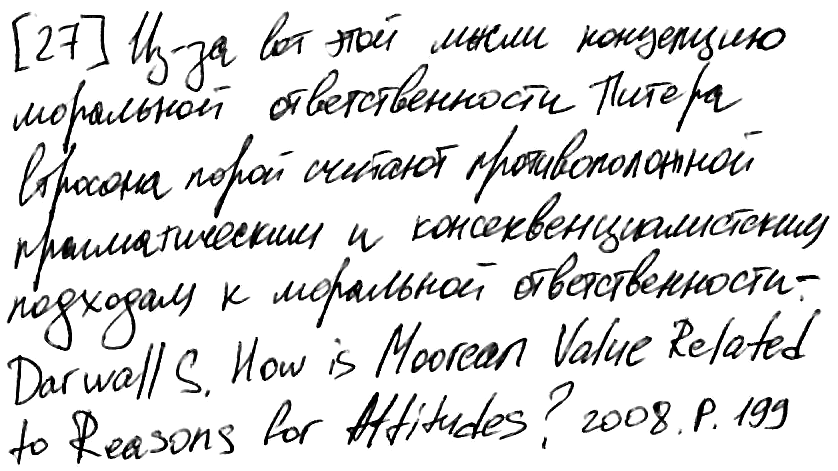 [27] Из-за вот этой мысли концепцию
моральной ответственности Питера
Стросона порой считают противоположной
прагматическим и консеквенциалистским
подходам к моральной ответственности -
Darwall S. How is Moorean Value Related
to Reasons for Attitudes? 2008. P. 199